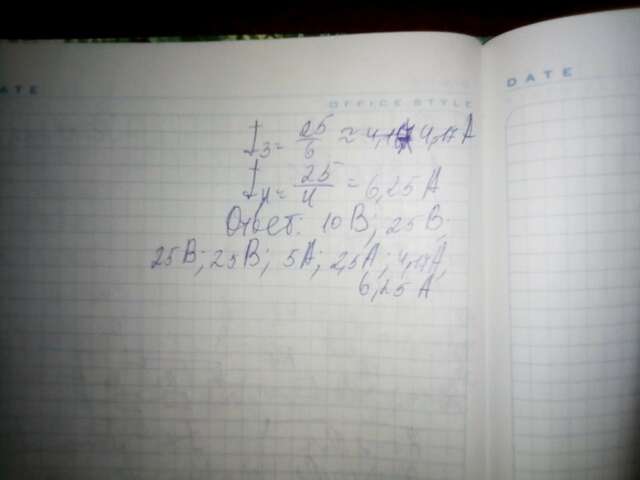 ATE
OFFICE STYLE
DATE
I₃ = 25/6 ≈ 4,17 A
I₄ = 25/4 = 6,25 A
Ответ: 10 В; 25 В;
25 В; 25 В; 5 А; 2,5 А; 4,17 А;
6,25 А